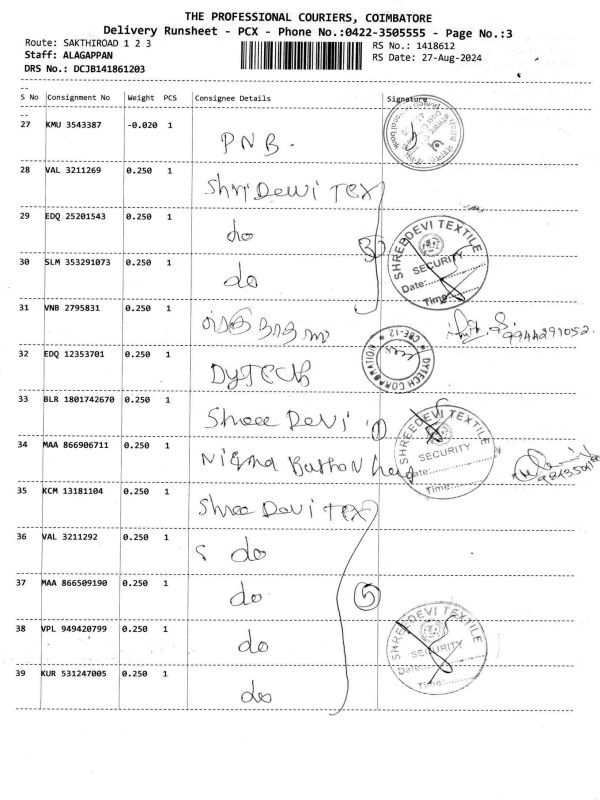 THE PROFESSIONAL COURIERS, COIMBATORE
Delivery Runsheet - PCX - Phone No.:0422-3505555 - Page No.:3
Route: SAKTHIROAD 1 2 3
RS No.: 1418612
Staff: ALAGAPPAN
RS Date: 27-Aug-2024
DRS No.: DCJB141861203
S No Consignment No Weight PCS Consignee Details Signature
27 KMU 3543387 -0.020 1
PNB.
28 VAL 3211269 0.250 1
Shri Dewi TEX
29 EDQ 25201543 0.250 1
do
3
SHREEDEVI TEXTILE
SECURITY
Date:
Time:
30 SLM 353291073 0.250 1
do
31 VNB 2795831 0.250 1
9944291052.
32 EDQ 12353701 0.250 1
DYTECH
* DYTECH CORPORATION * CBE-12
33 BLR 1801742670 0.250 1
Shree Devi
1
SHREEDEVI TEXTILE
SECURITY
Date:
Time:
34 MAA 866906711 0.250 1
Button
35 KCM 13181104 0.250 1
Shree Devi TEX
36 VAL 3211292 0.250 1
do
37 MAA 866509190 0.250 1
do
5
38 VPL 949420799 0.250 1
do
SHREEDEVI TEXTILE
SECURITY
Date:
Time:
39 KUR 531247005 0.250 1
do